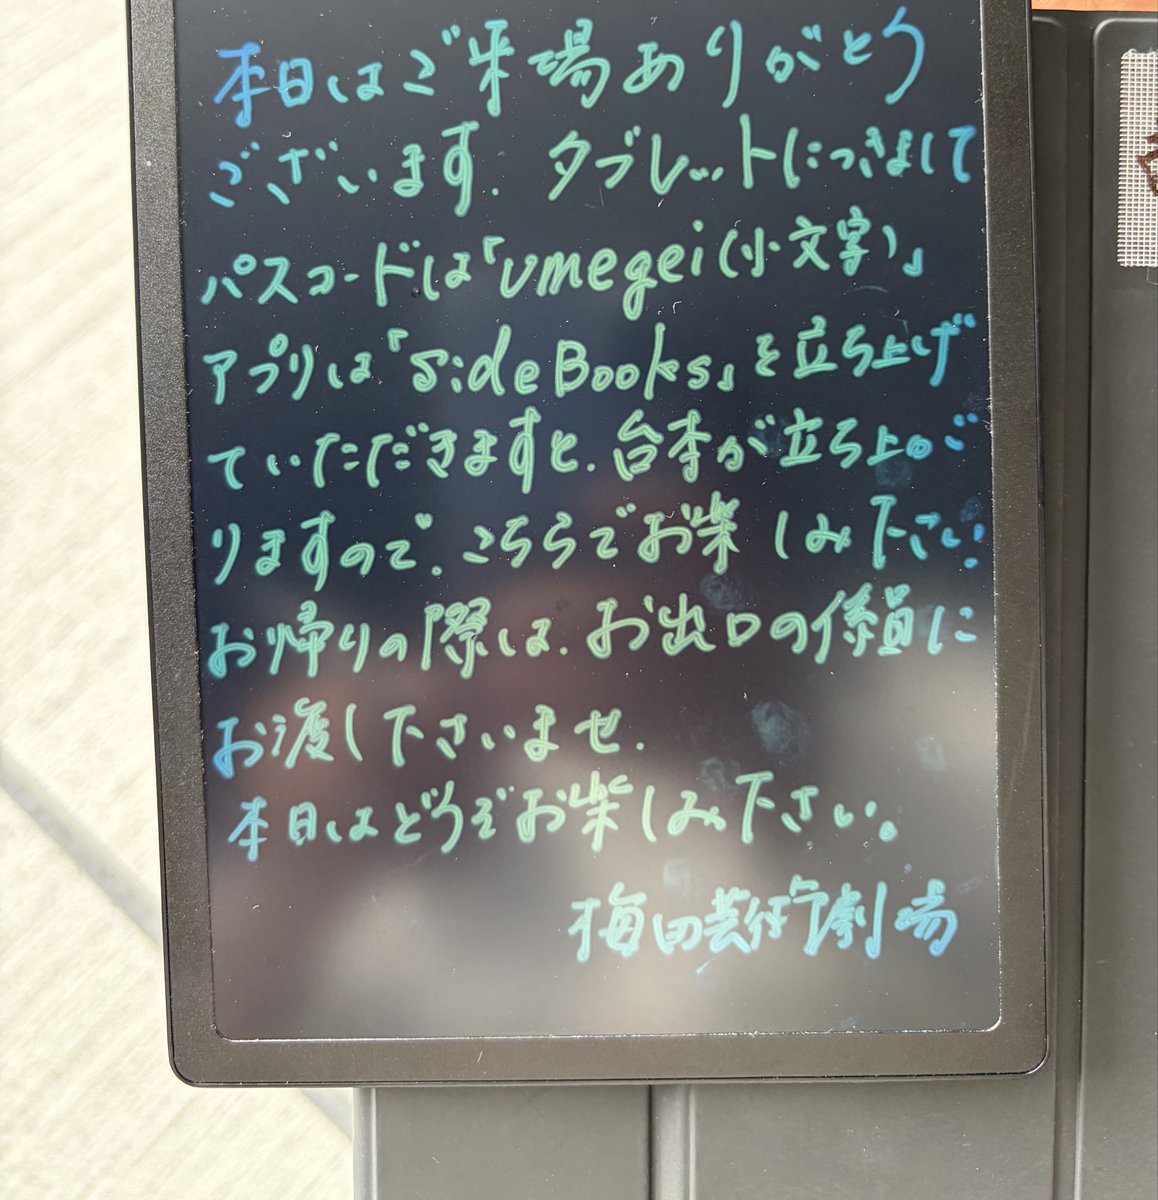 本日はご来場ありがとう
ございます. タブレットにつきまして
パスコードは「umegei(小文字)」
アプリは「SideBooks」を立ち上げ
ていただきますと. 台本が立ち上がご
りますので. こちらでお楽しみ下さい.
お帰りの際は. お出口の係員に
お渡し下さいませ.
本日はどうぞお楽しみ下さい。
梅田芸術劇場